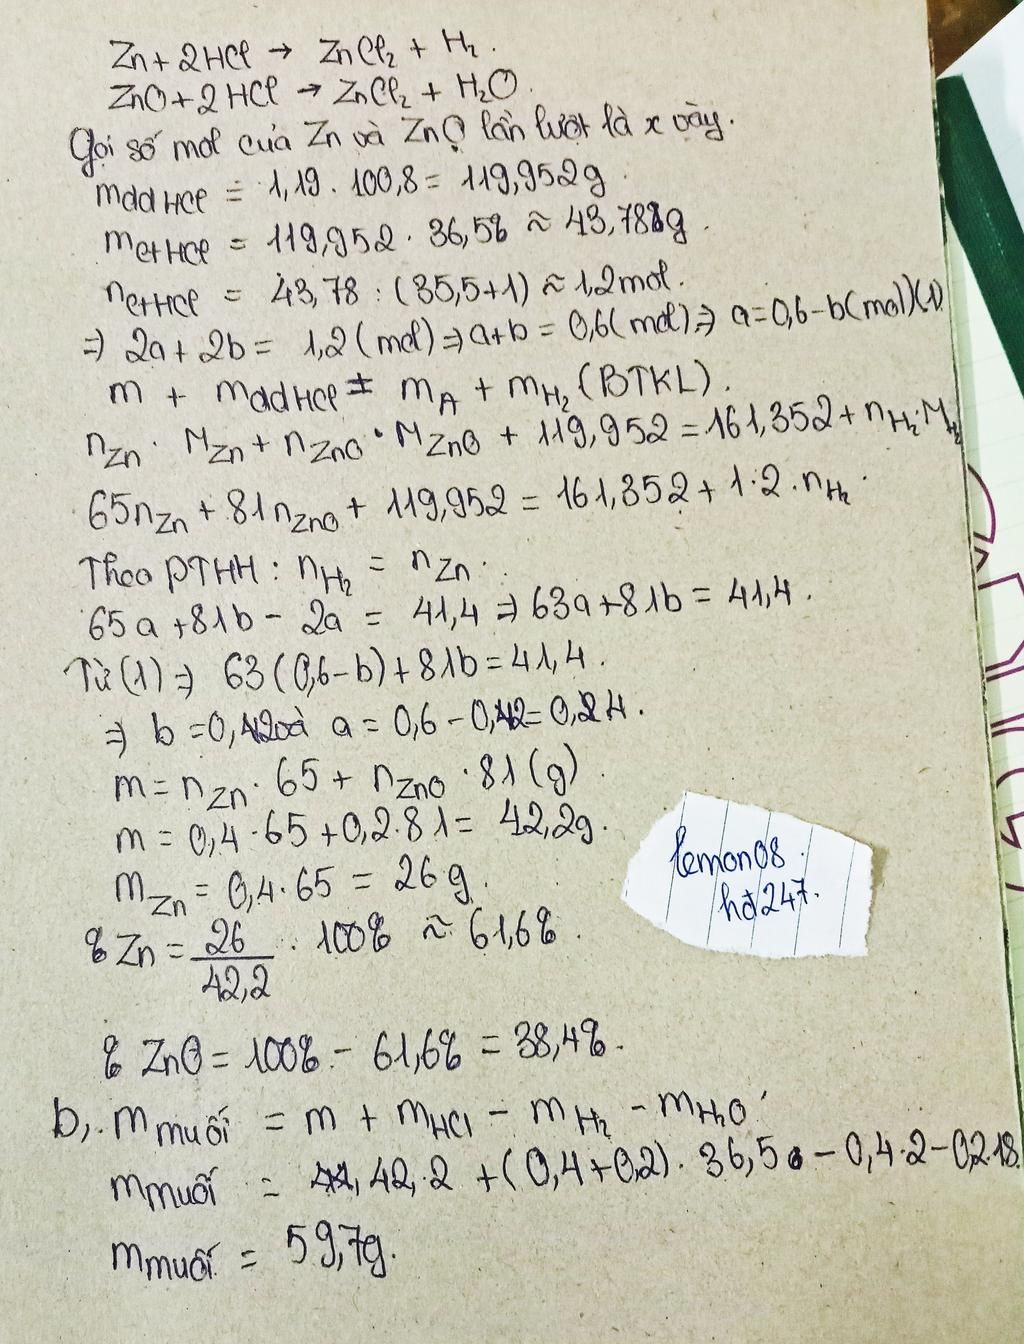 Zn + 2HCl → ZnCl₂ + H₂.
ZnO + 2HCl → ZnCl₂ + H₂O.
Gọi số mol của Zn và ZnO lần lượt là x và y.
mddHCl = 1,19 . 100,8 = 119,952g.
mctHCl = 119,952 . 36,5% ≈ 43,78g.
nctHCl = 43,78 : (35,5+1) ≈ 1,2mol.
⇒ 2a + 2b = 1,2 (mol) ⇒ a+b = 0,6 (mol) ⇒ a = 0,6 - b (mol) (1)
m + mddHCl = mA + mH₂ (BTKL).
nZn . MZn + nZnO . MZnO + 119,952 = 161,352 + nH₂ . MH₂
65nZn + 81nZnO + 119,952 = 161,352 + 1.2.nH₂.
Theo PTHH: nH₂ = nZn.
65a + 81b - 2a = 41,4 ⇒ 63a + 81b = 41,4.
Từ (1) ⇒ 63(0,6-b) + 81b = 41,4.
⇒ b = 0,2 và a = 0,6 - 0,2 = 0,4.
m = nZn . 65 + nZnO . 81 (g)
m = 0,4 . 65 + 0,2 . 81 = 42,2g.
mZn = 0,4 . 65 = 26g.
% Zn = 26/42,2 . 100% ≈ 61,6%.
lemon08.
hđ247.
% ZnO = 100% - 61,6% = 38,4%.
b,. mmuối = m + mHCl - mH₂ - mH₂O
mmuối = 42,2 + (0,4+0,2) . 36,5 - 0,4.2 - 0,2.18
mmuối = 59,7g.